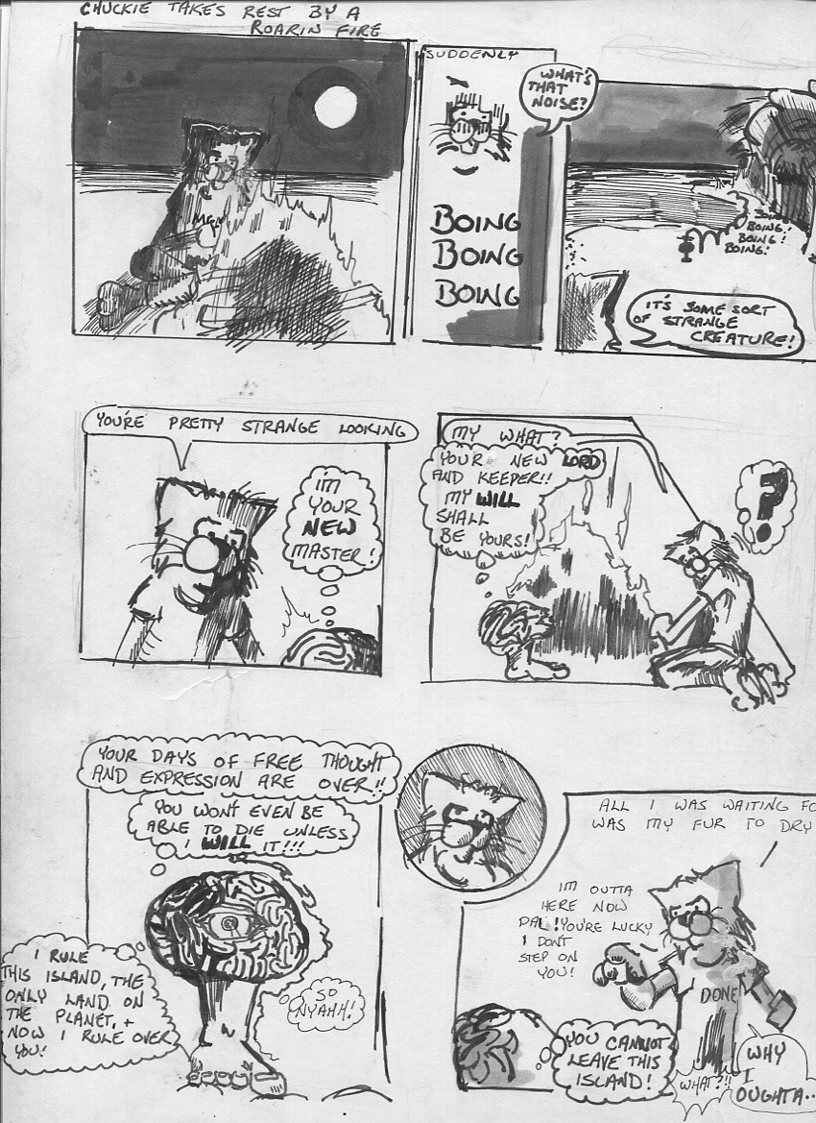 CHUCKIE TAKES REST BY A
ROARIN FIRE
SUDDENLY
WHAT'S
THAT
NOISE?
BOING
BOING
BOING
BOING!
BOING!
BOING!
IT'S SOME SORT
OF STRANGE
CREATURE!
YOU'RE PRETTY STRANGE LOOKING
IM
YOUR
NEW
MASTER!
MY WHAT?
YOUR NEW LORD
AND KEEPER!!
MY WILL
SHALL
BE YOURS!
?
YOUR DAYS OF FREE THOUGHT
AND EXPRESSION ARE OVER!!
YOU WONT EVEN BE
ABLE TO DIE UNLESS
I WILL IT!!!
I RULE
THIS ISLAND, THE
ONLY LAND ON
THE PLANET, +
NOW I RULE OVER
YOU!
SO
NYAHH!
ALL I WAS WAITING
WAS MY FUR TO DRY
IM OUTTA
HERE NOW
PAL! YOU'RE LUCKY
I DON'T
STEP ON
YOU!
DONE
YOU CANNOT
LEAVE THIS
ISLAND!
WHAT?!!
WHY
I
OUGHTA..